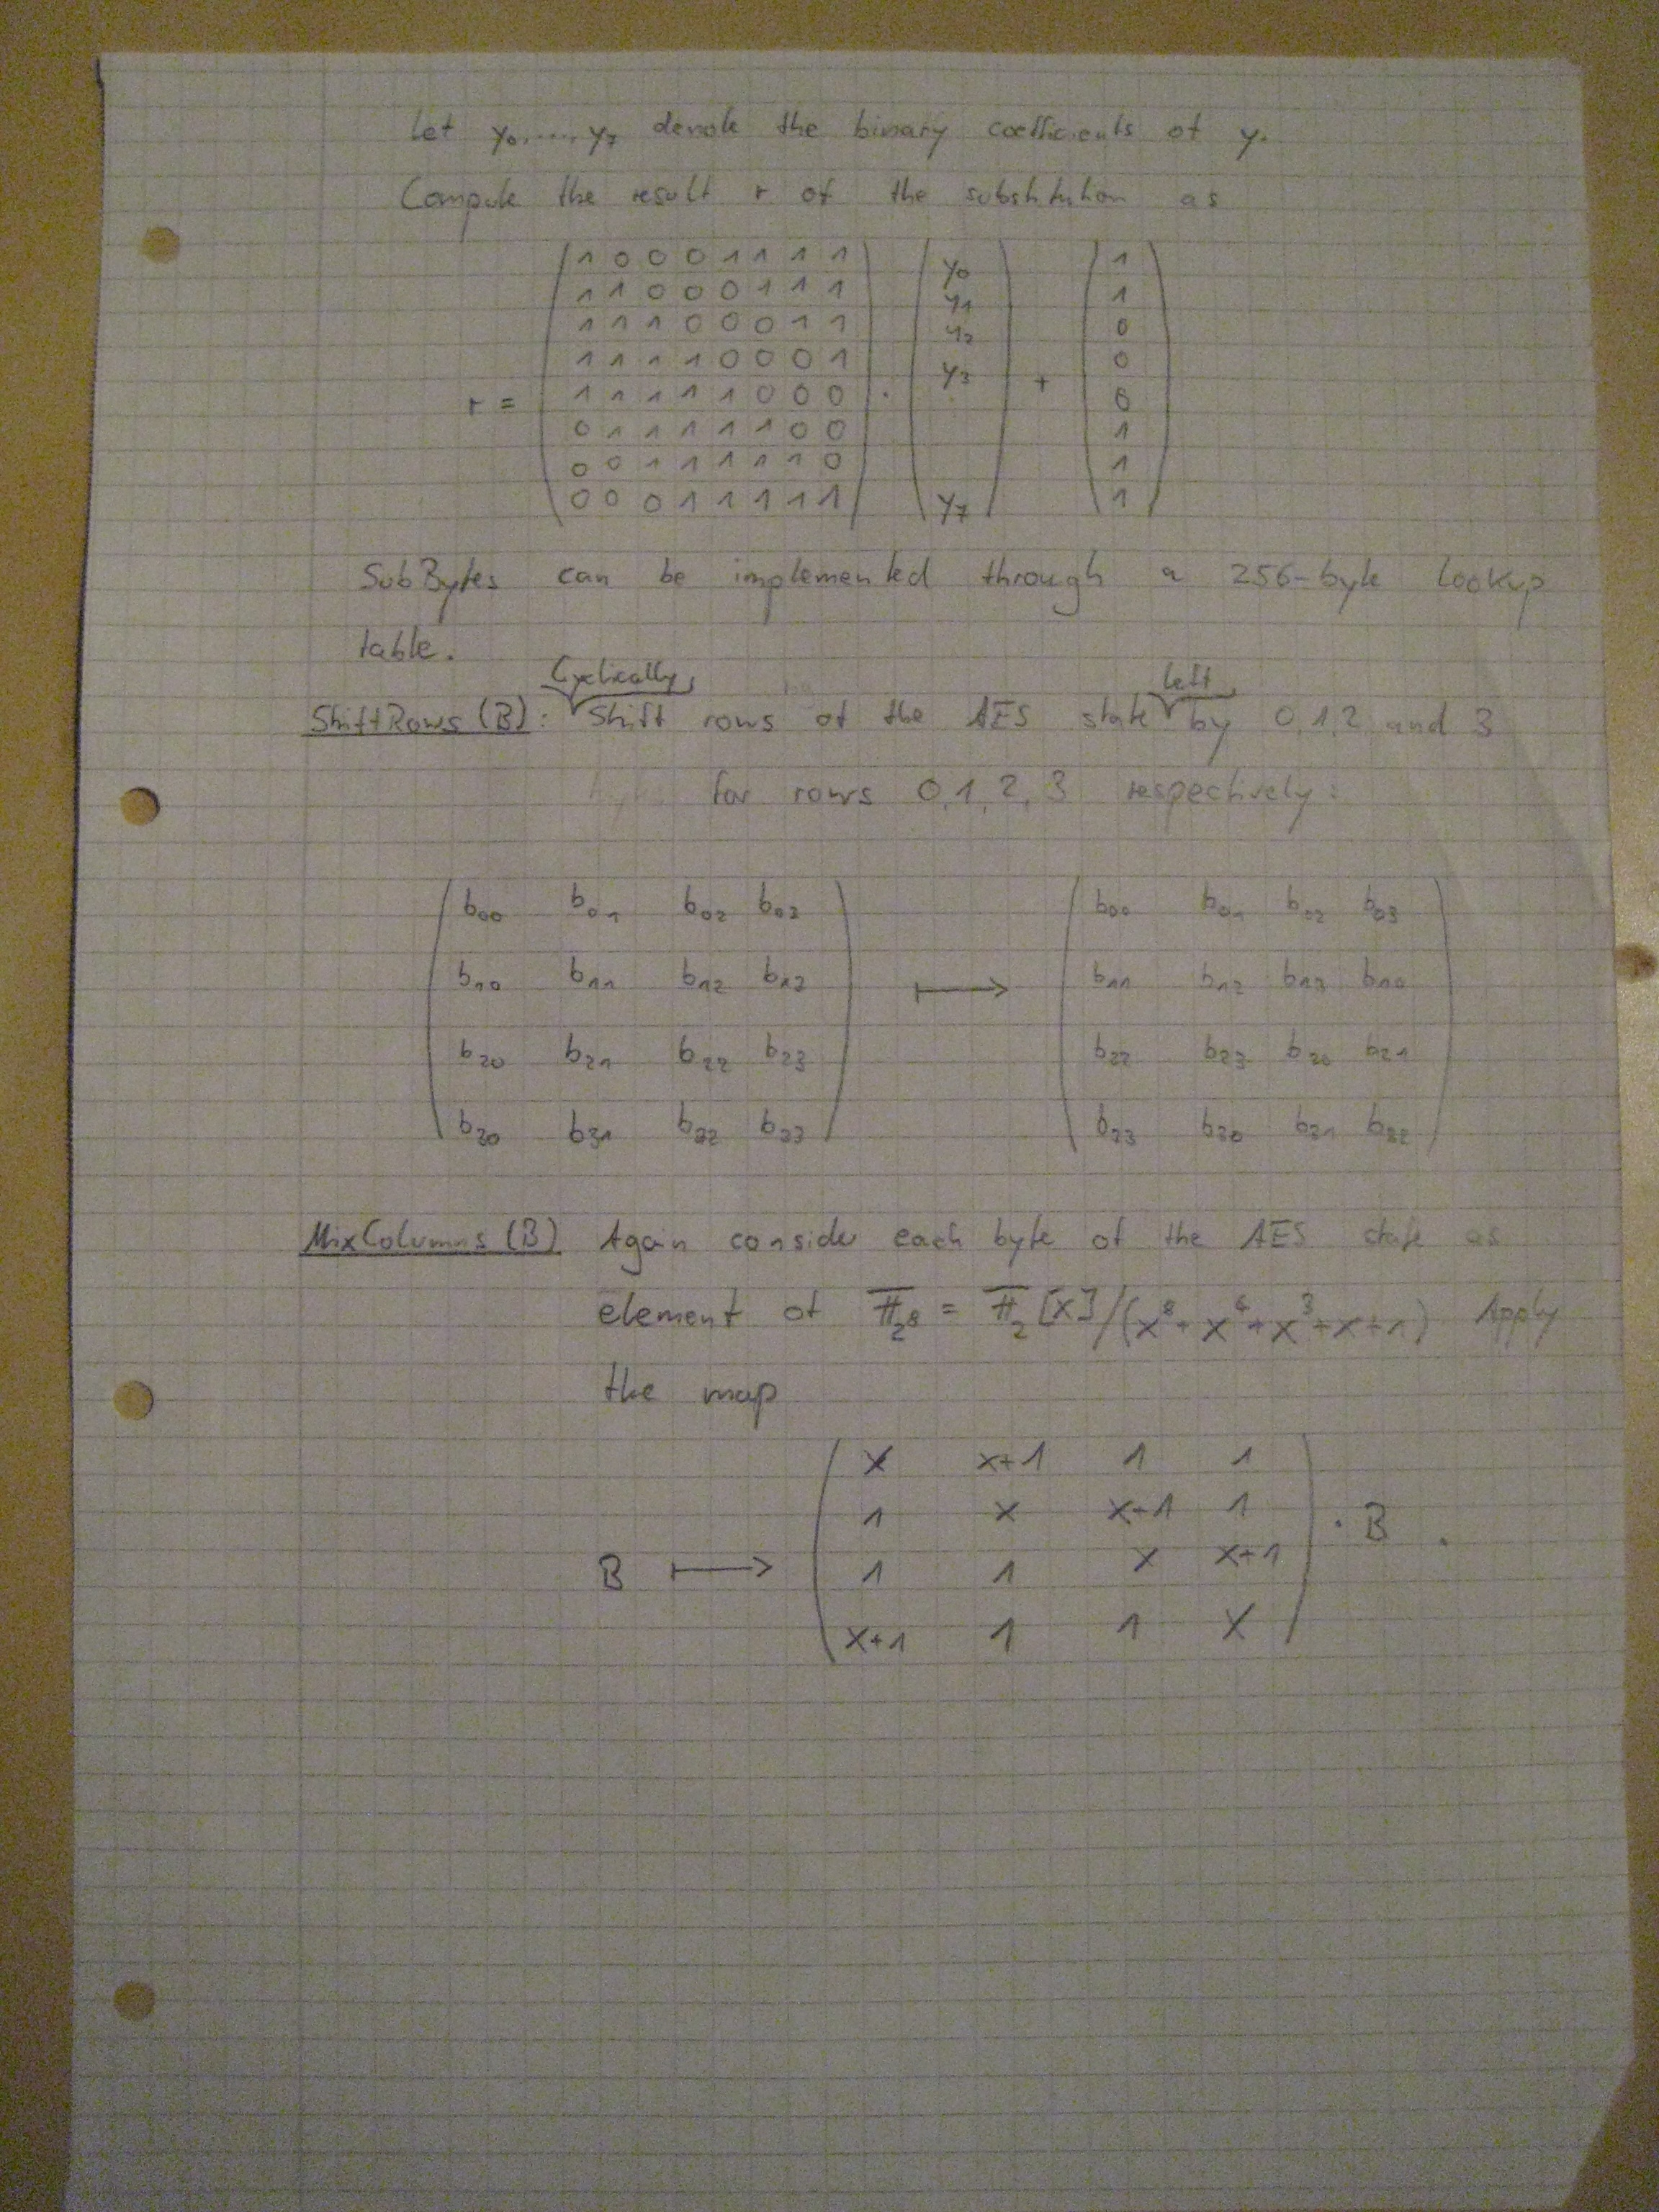 Let y₀,....,y₇ denote the binary coefficients of y.
Compute the result r of the substitution as
r = ( 1 0 0 0 1 1 1 1 ) · ( y₀ ) + ( 1 )
1 1 0 0 0 1 1 1 y₁ 1
1 1 1 0 0 0 1 1 y₂ 0
1 1 1 1 0 0 0 1 y₃ 0
1 1 1 1 1 0 0 0 0
0 1 1 1 1 1 0 0 1
0 0 1 1 1 1 1 0 1
0 0 0 1 1 1 1 1 y₇ 1
SubBytes can be implemented through a 256-byte lookup
table.
ShiftRows (B): Cyclically Shift rows of the AES state left by 0,1,2 and 3
for rows 0,1,2,3 respectively:
b₀₀ b₀₁ b₀₂ b₀₃ ↦ b₀₀ b₀₁ b₀₂ b₀₃
b₁₀ b₁₁ b₁₂ b₁₃ b₁₁ b₁₂ b₁₃ b₁₀
b₂₀ b₂₁ b₂₂ b₂₃ b₂₂ b₂₃ b₂₀ b₂₁
b₃₀ b₃₁ b₃₂ b₃₃ b₃₃ b₃₀ b₃₁ b₃₂
MixColumns (B) Again consider each byte of the AES state as
element of 𝔽₂⁸ = 𝔽₂[X]/(X⁸+X⁴+X³+X+1) Apply
the map
B ↦ ( X X+1 1 1 ) · B .
1 X X+1 1
1 1 X X+1
X+1 1 1 X